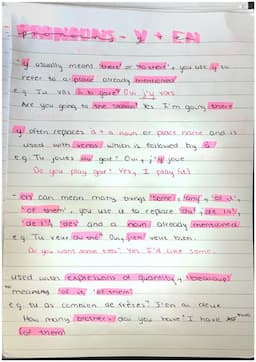 PRONOUNS - Y + EN
- 'y' usually means 'there' or 'to there', you use y to
refer to a place already mentioned
e.g. Tu vas à la gare? Oui j'y vais
Are you going to the station? Yes I'm going there
'y' often replaces à + a noun or place name and is
used with verbs which is followed by à
e.g. Tu joues au golf? Oui, j'y joue
Do you play golf? Yes, I play (it)
- en can mean many things 'some', 'any', 'of it',
'of them', you use it to replace 'du', 'de la',
'de l'', 'des' and a noun already mentioned
e.g. Tu veux du thé? Oui, j'en veux bien.
Do you want some tea? Yes I'd like some.
used with expressions of quantity, 'beaucoup'
meaning 'of it', 'of them'
e.g. tu as combien de frères? J'en ai deux
How many brothers do you have? I have two
(of them)